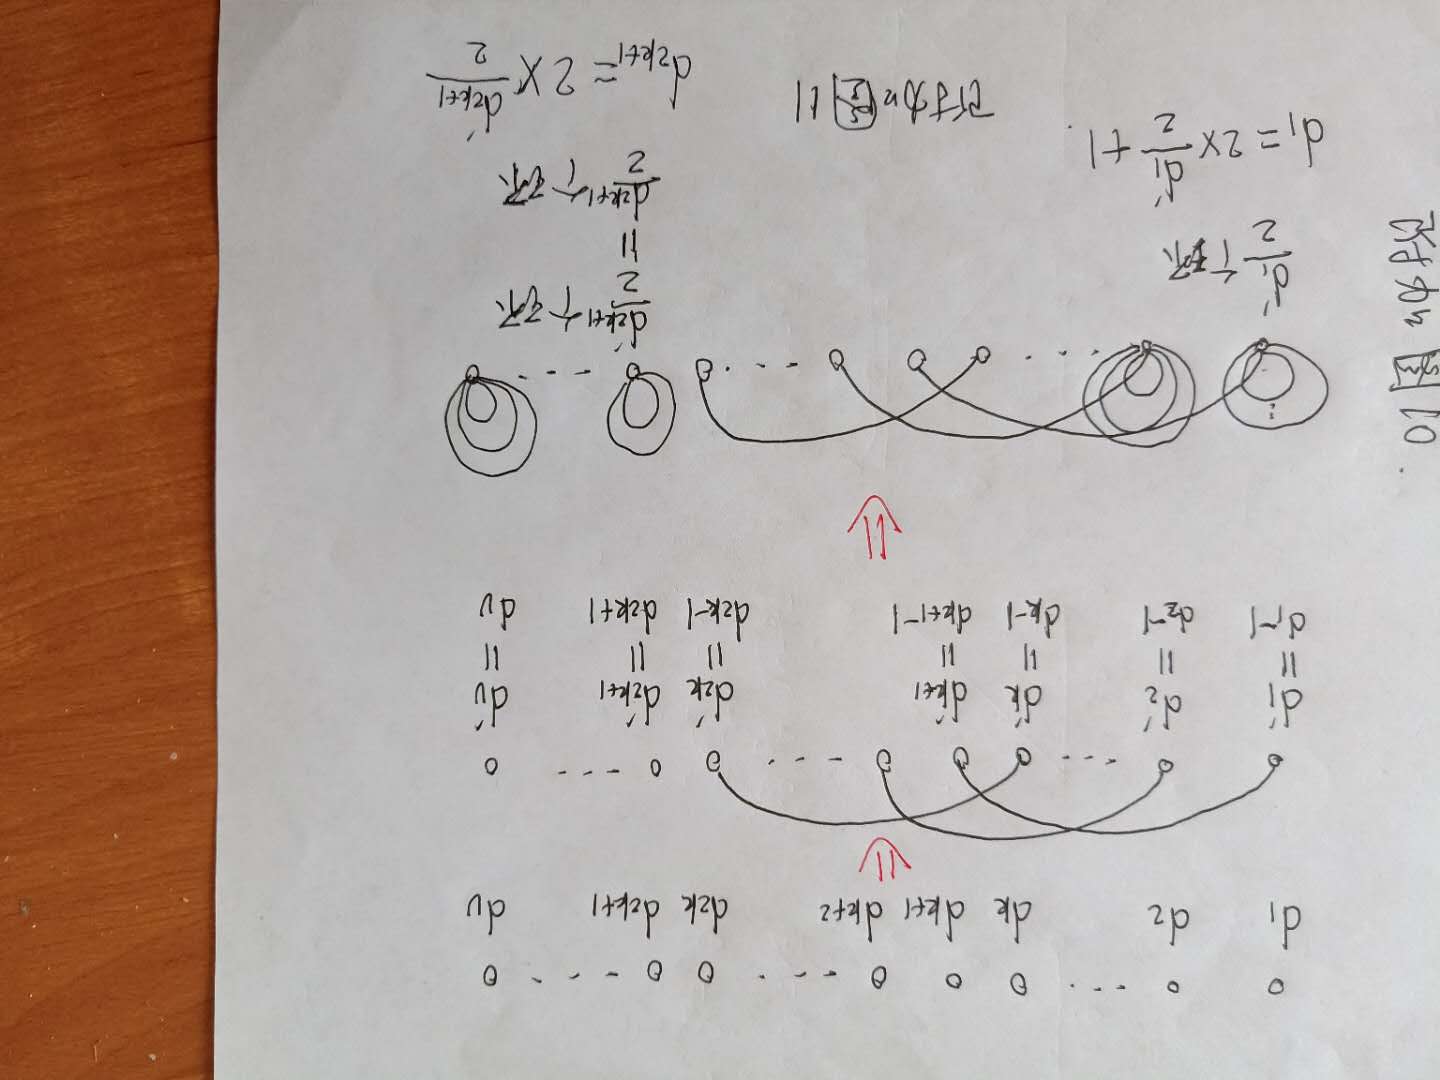 d₁ d₂ dk dk+1 dk+2 d2k d2k+1 dν
d₁′ d₂′ dk′ d′k+1 d′2k d′2k+1 dν′
= = = = = = =
d₁-1 d₂-1 dk-1 dk+1-1 d2k-1 d2k+1 dν
d₁′/2 个环
d′2k+1/2 个环
=
d2k+1/2 个环
d₁=2×d₁′/2+1.
d2k+1=2×d′2k+1/2